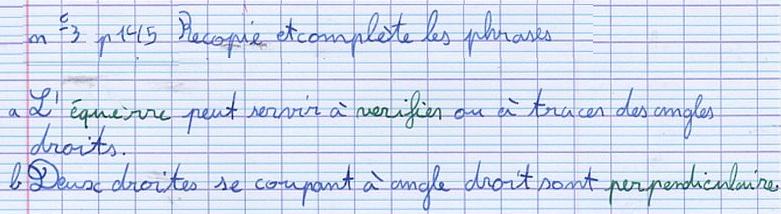 n° 3 p 145 Recopie et complète les phrases
a L'équerre peut servir à verifier ou à tracer des angles
droits.
b Deux droites se coupant à angle droit sont perpendiculaire